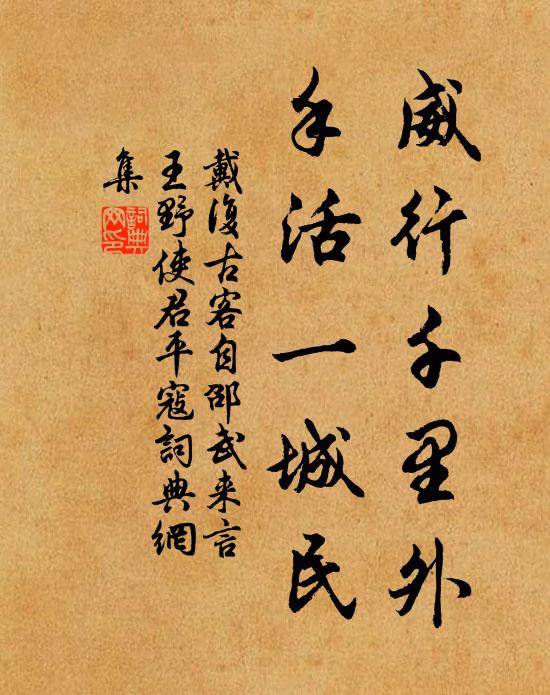 威行千里外
手活一城民
戴復古客自邵武來言
王野使君平寇詞典網
集
詞典網印